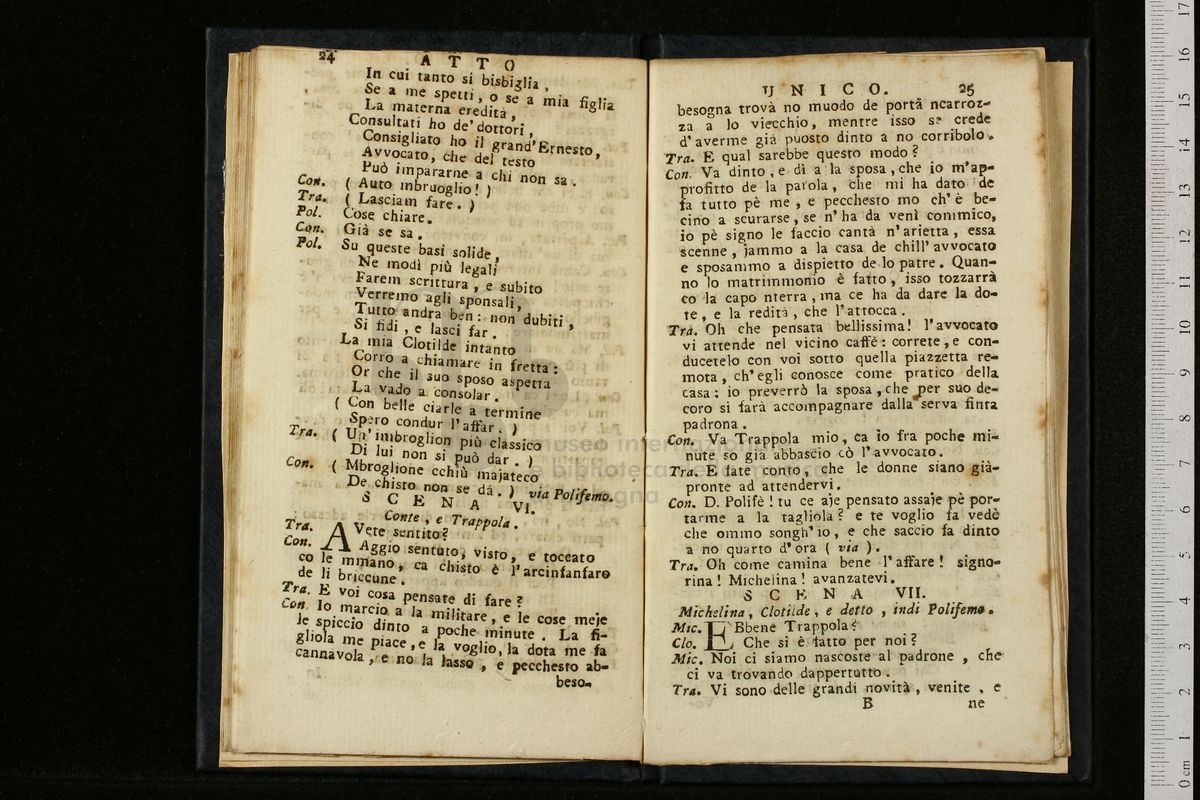 24
A T T O
In cui tanto si bisbiglia,
Se a me spetti, o se a mia figlia
La materna eredita,
Consultati ho de' dottori,
Consigliato ho il grand'Ernesto,
Avvocato, che del testo
Può impararne a chi non sa.
Con. ( Auto mbruoglio! )
Tra. ( Lasciam fare. )
Pol. Cose chiare.
Con. Già se sa.
Pol. Su queste basi solide,
Ne modì più legali
Farem scrittura, e subito
Verremo agli sponsali,
Tutto andra ben: non dubiti,
Si fidi, e lasci far.
La mia Clotilde intanto
Corro a chiamare in fretta:
Or che il suo sposo aspetta
La vado a consolar.
( Con belle ciarle a termine
Spero condur l'affar. )
Tra. ( Un'imbroglion più classico
Di lui non si può dar. )
Con. ( Mbroglione cchiù majateco
De chisto non se dà. ) via Polifemo.
S C E N A VI.
Conte, e Trappola.
Tra. AVete sentito?
Con. Aggio sentuto, visto, e toccato
co le mmano, ca chisto è l'arcinfanfaro
de li briccune.
Tra. E voi cosa pensate di fare?
Con. Io marcio a la militare, e le cose meje
le spiccio dinto a poche minute. La fi-
gliola me piace, e la voglio, la dota me fa
cannavola, e no la lasso, e pecchesto ab-
beso-
UNICO. 25
besogna trovà no muodo de portà ncarroz-
za a lo viecchio, mentre isso se crede
d'averme già puosto dinto a no corribolo.
Tra. E qual sarebbe questo modo?
Con. Va dinto, e dì a la sposa, che io m'ap-
profitto de la parola, che mi ha dato de
fa tutto pè me, e pecchesto mo ch'è be-
cino a scurarse, se n'ha da venì commico,
io pè signo le faccio cantà n'arietta, essa
scenne, jammo a la casa de chill'avvocato
e sposammo a dispietto de lo patre. Quan-
no lo matrimmonio è fatto, isso tozzarrà
co la capo nterra, ma ce ha da dare la do-
te, e la redità, che l'attocca.
Tra. Oh che pensata bellissima! l'avvocato
vi attende nel vicino caffè: correte, e con-
ducetelo con voi sotto quella piazzetta re-
mota, ch'egli conosce come pratico della
casa: io preverrò la sposa, che per suo de-
coro si farà accompagnare dalla serva finta
padrona.
Con. Va Trappola mio, ca io fra poche mi-
nute so già abbascio cò l'avvocato.
Tra. E fate conto, che le donne siano già-
pronte ad attendervi.
Con. D. Polifè! tu ce aje pensato assaje pè por-
tarme a la tagliola? e te voglio fa vedè
che ommo songh'io, e che saccio fa dinto
a no quarto d'ora ( via ).
Tra. Oh come camina bene l'affare! signo-
rina! Michelina! avanzatevi.
S C E N A VII.
Michelina, Clotilde, e detto, indi Polifemo.
Mic. EBbene Trappola?
Clo. Che si è fatto per noi?
Mic. Noi ci siamo nascoste al padrone, che
ci va trovando dappertutto.
Tra. Vi sono delle grandi novità, venite, e
B ne
museo internazionale
e biblioteca della musica
di Bologna
0 cm 1 2 3 4 5 6 7 8 9 10 11 12 13 14 15 16 17